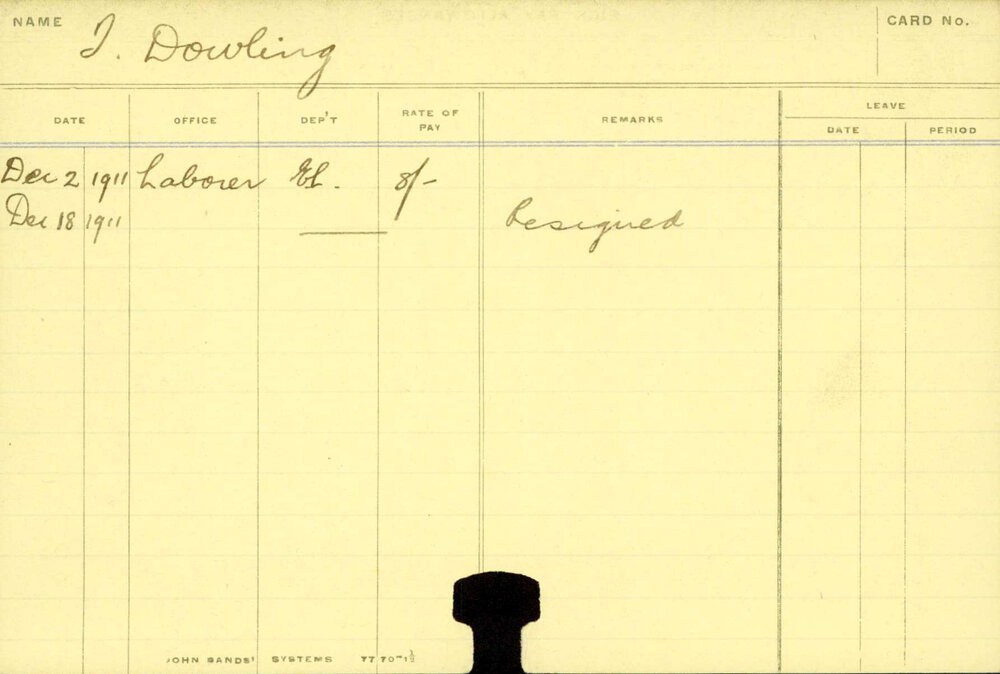 NAME J. Dowling CARD No.
DATE OFFICE DEP'T RATE OF PAY REMARKS LEAVE
DATE PERIOD
Dec 2 1911 Laborer El. 8/-
Dec 18 1911 Resigned
JOHN SANDS' SYSTEMS